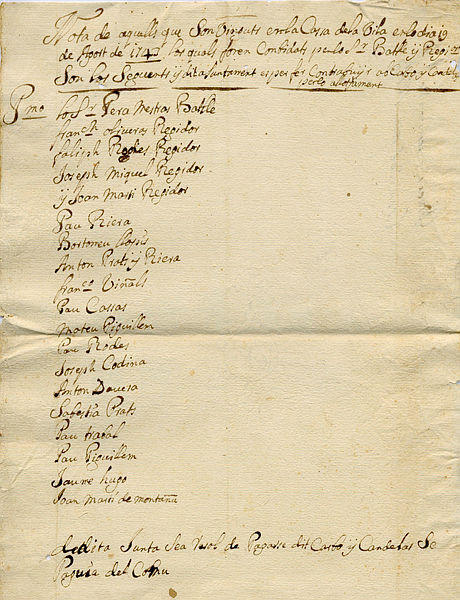 Nota de aquells que son Vinguts en la Casa de la Vila en lo dia 19
de Agost de 1743 los quals foren Combidats per lo Sr Batlle y Regidors
Son los Seguents y dit ajuntament es per fer Contribuir al Carbo y Candelas
per lo alotjament
Pmo lo Sr Pera Mestras Batlle
franch oliveras Regidor
falip Rodes Regidor
Joseph Miquel Regidor
y Joan Marti Regidor
Pau Riera
Bortomeu
Anton Prats y Riera
franco Viñals
Pau Cassas
Mateu Piguillem
Pau Rodes
Joseph Codina
Anton Davesa
Sabestia Prats
Pau
Pau Piguillem
Jaume hugo
Joan Marti de montañá
de dita Junta Sea resol de Pagarse dit Carbo y Candelas Se
Paguia del Comu